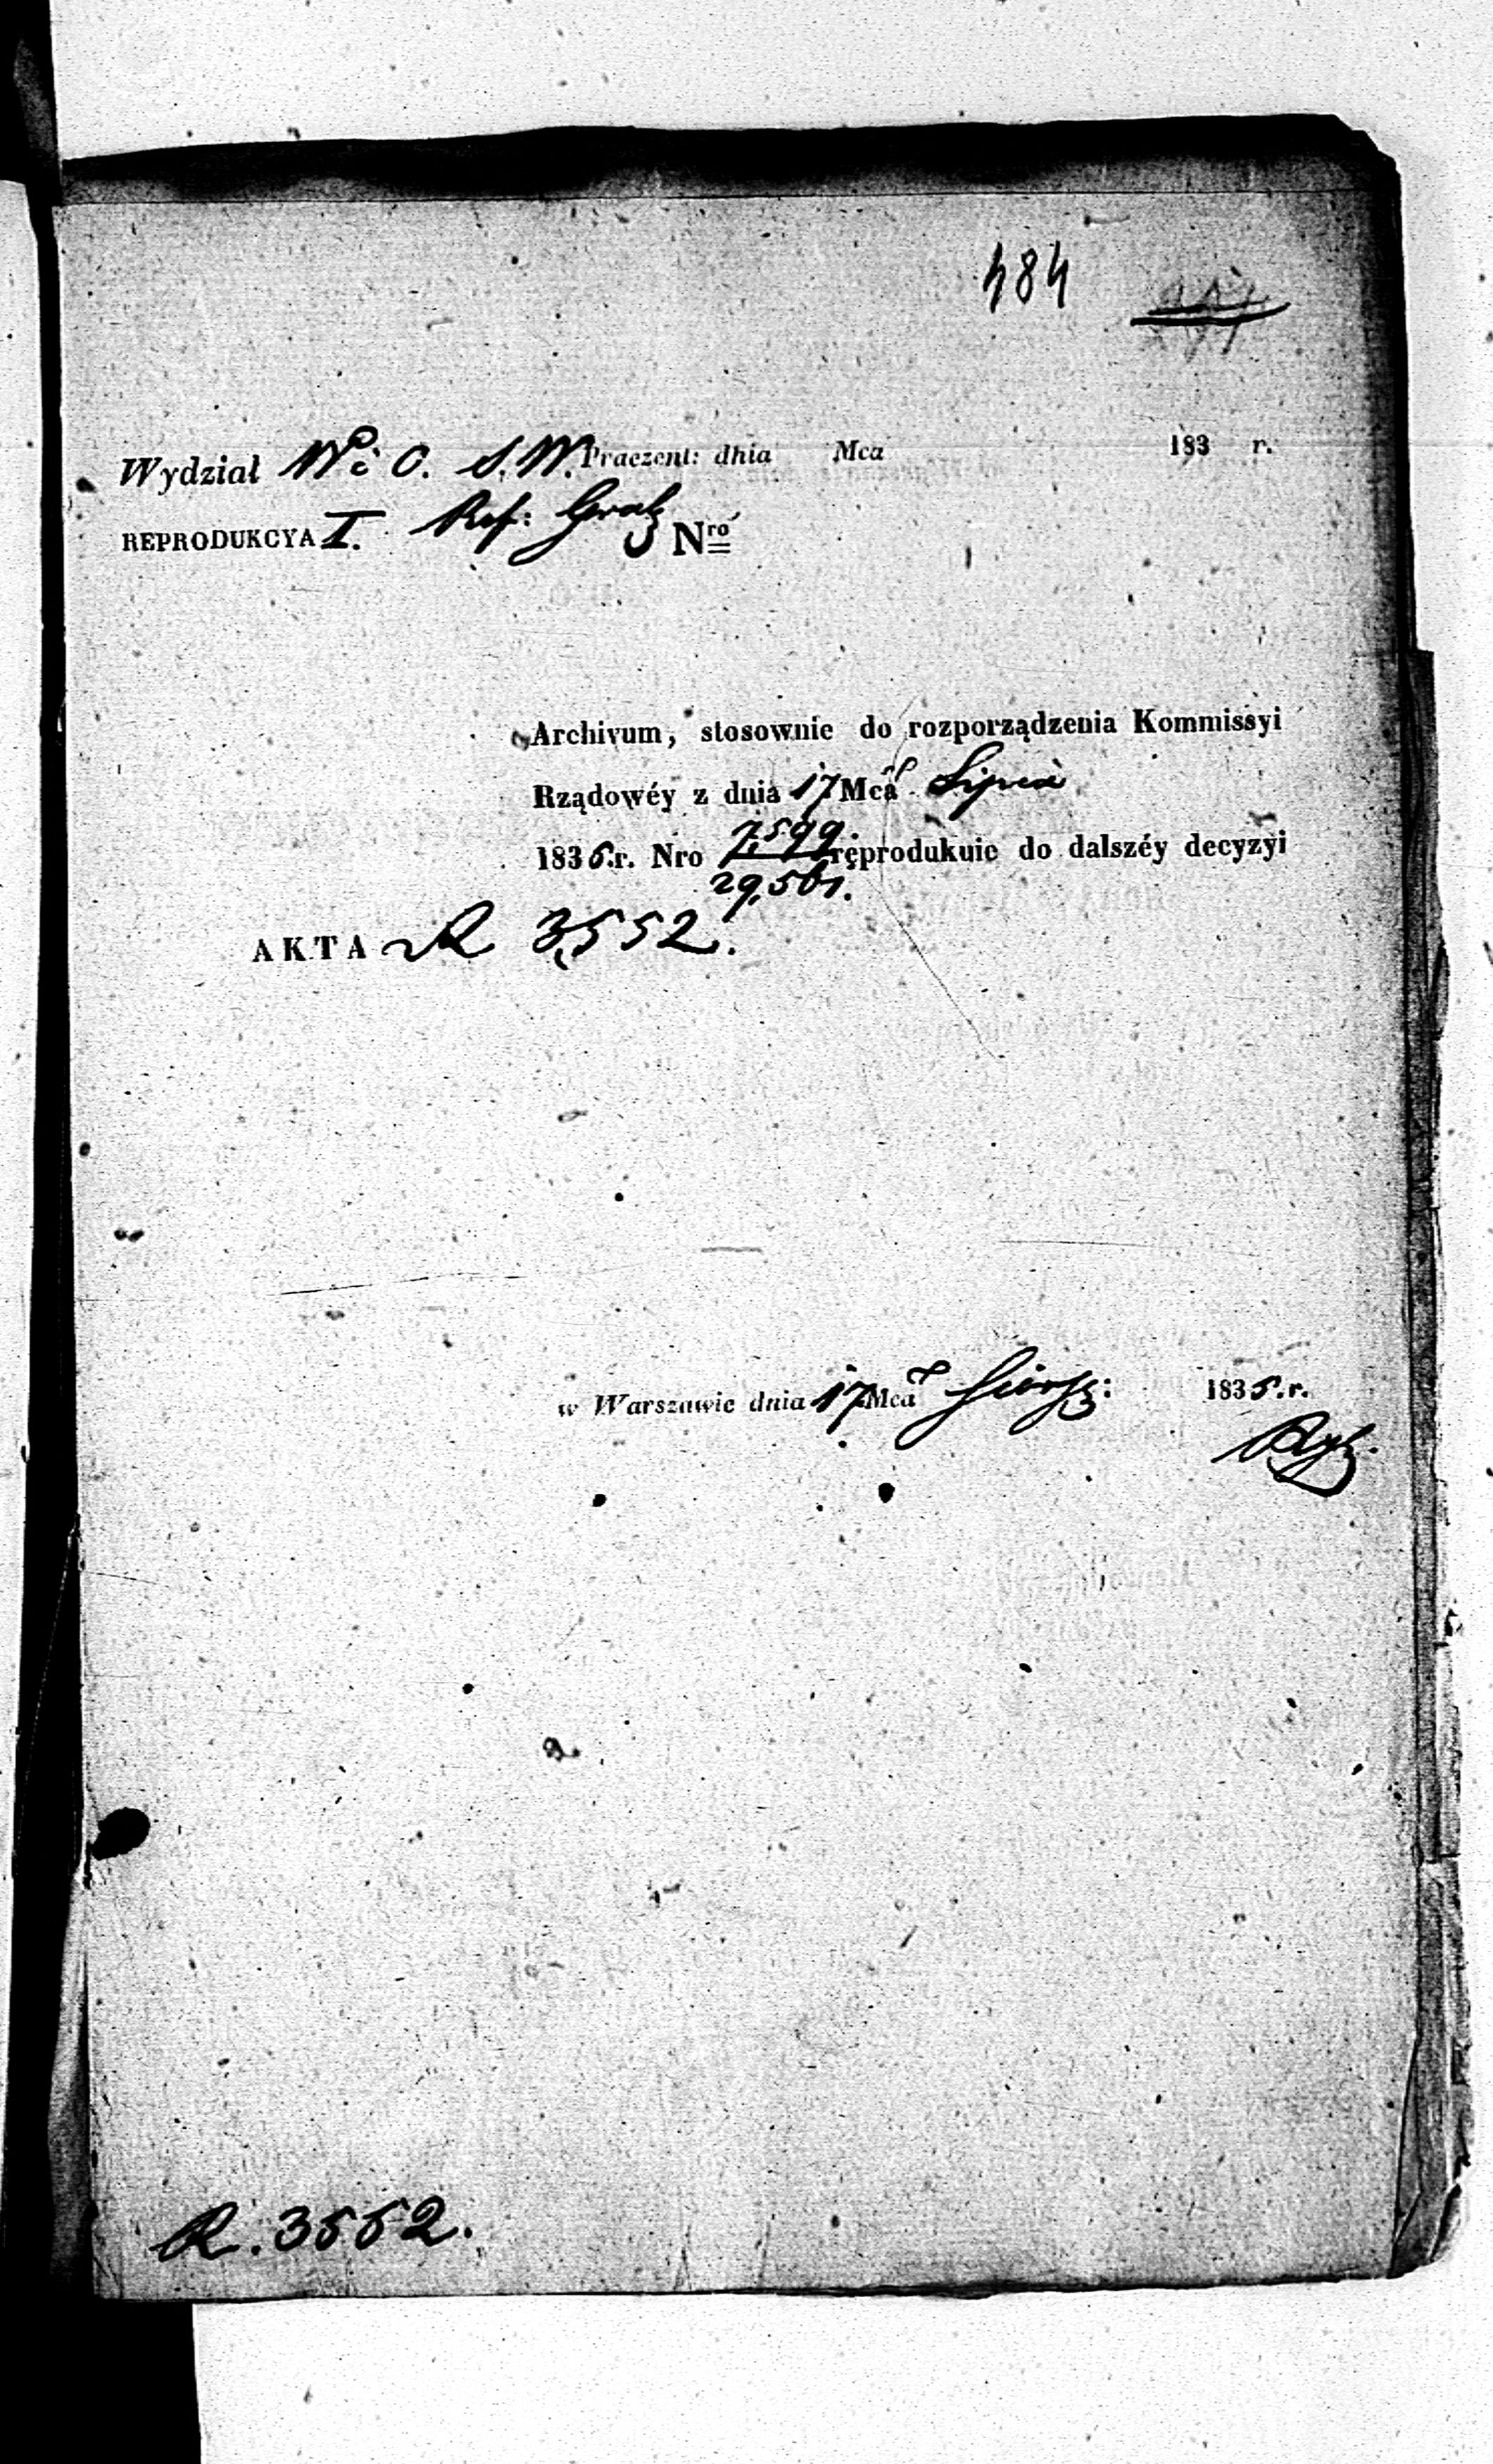 484
Wydział W. i O. S. W. Praezent: dnia Mca 183 r.
REPRODUKCYA I. Ref: Nro
Archivum, stosownie do rozporządzenia Kommissyi
Rządowéy z dnia 17 Mca Lipca
1835.r. Nro 7,599. reprodukuie do dalszéy decyzyi
29,561.
AKTA R 3,552.
w Warszawie dnia 17 Mca Sierp: 1835.r.
R. 3552.